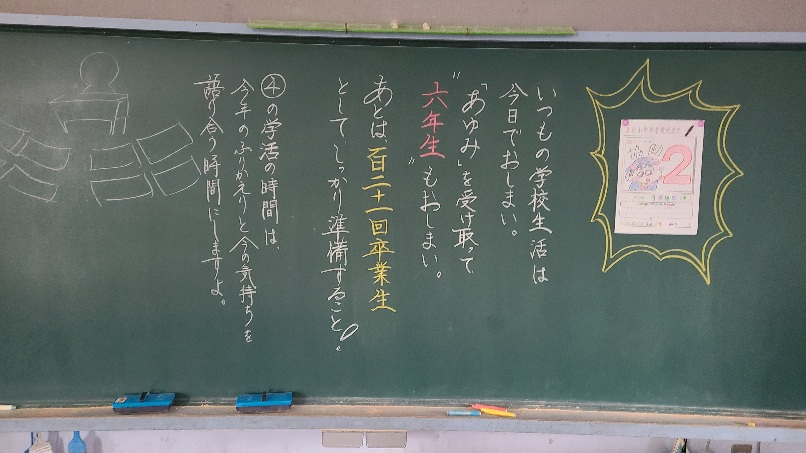 いつもの学校生活は
今日でおしまい。
「あゆみ」を受け取って
"六年生"もおしまい。
あとは百二十一回卒業生
として しっかり準備すること。
④の学活の時間は、
今年のふりかえりと今の気持ちを
語り合う時間にしますよ。
2